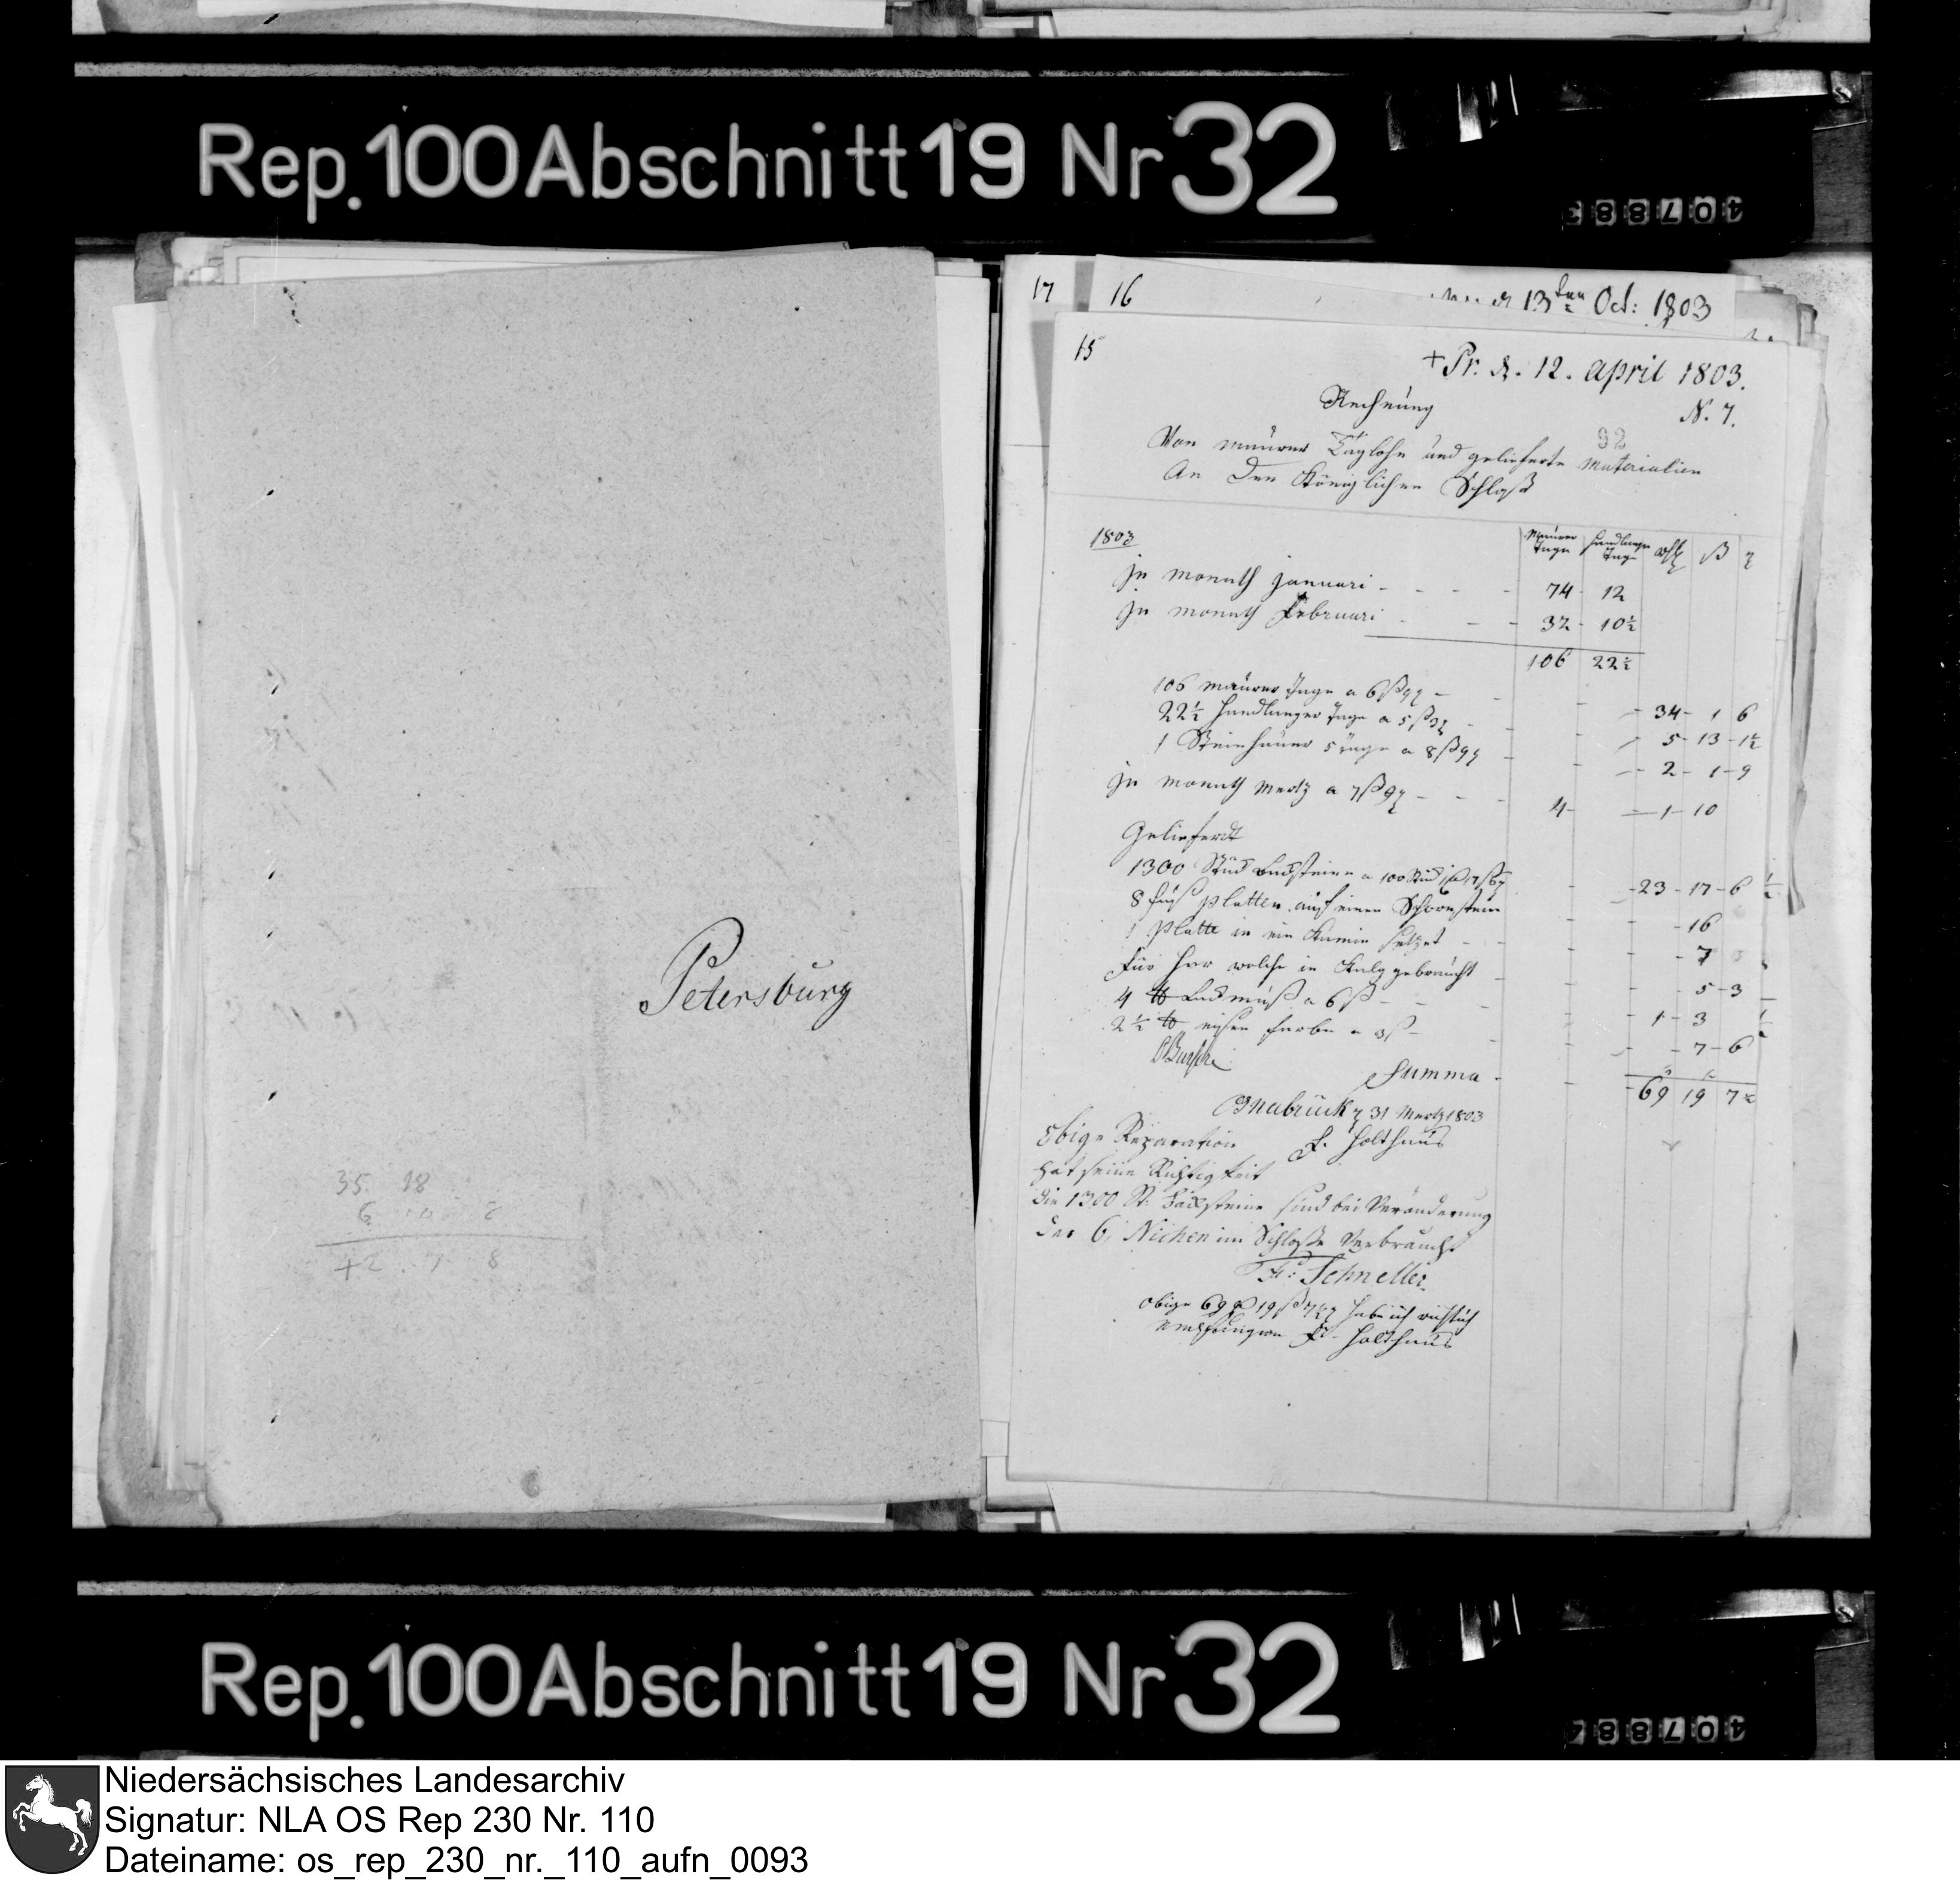 Rep. 100 Abschnitt 19 Nr 32
Petersburg
35. 18
17
16
13ten Oct: 1803
15
+ Pr. d. 12. April 1803.
Rechnung
N. 7.
92
Von maürer Taglohn und gelieferte Materialien
An Den Königlichen Schloß
1803
Maürer Tage
Handlanger Tage
ß
Jn monath Januari - - - - 74 - 12
Jn monath Februari - - - 32 - 10½
106 22½
106 maürer Tage a 6 ß 9 - - 34 - 1 6
22½ Handlanger Tage a 5 ß 3 - 5 - 13 - 1½
1 Steinhauer 5 Tage a 8 ß 9 - 2 - 1 - 9
Jn monath Mertz a 7 ß 9 - - - 4 - 1 - 10
Geliefert
1300 Stück Backsteine a 100 Stück - 23 - 17 - 6
8 Fuß platten auf einen Schornstein - 16
1 Platte in ein Kamin gesetzet - 7
Für Har welche in Kalg gebraucht - 5 - 3
4 ℔ a 6 ß - 1 - 3
2½ ℔ eisen farbe a 3 ß - 7 - 6
Summa - 69 19 7½
Osnabrück d 31 Mertz 1803
F. Holthaus
Obige Reparation
hat seine Richtigkeit
die 1300 St: Backsteine sind bei Veränderung
der 6 Nichen im Schloße Verbraucht
Fr: Schneller
Obige 69 19 ß 7½ habe ich richtich
empfangen F. Holthaus
Rep. 100 Abschnitt 19 Nr 32
Niedersächsisches Landesarchiv
Signatur: NLA OS Rep 230 Nr. 110
Dateiname: os_rep_230_nr._110_aufn_0093